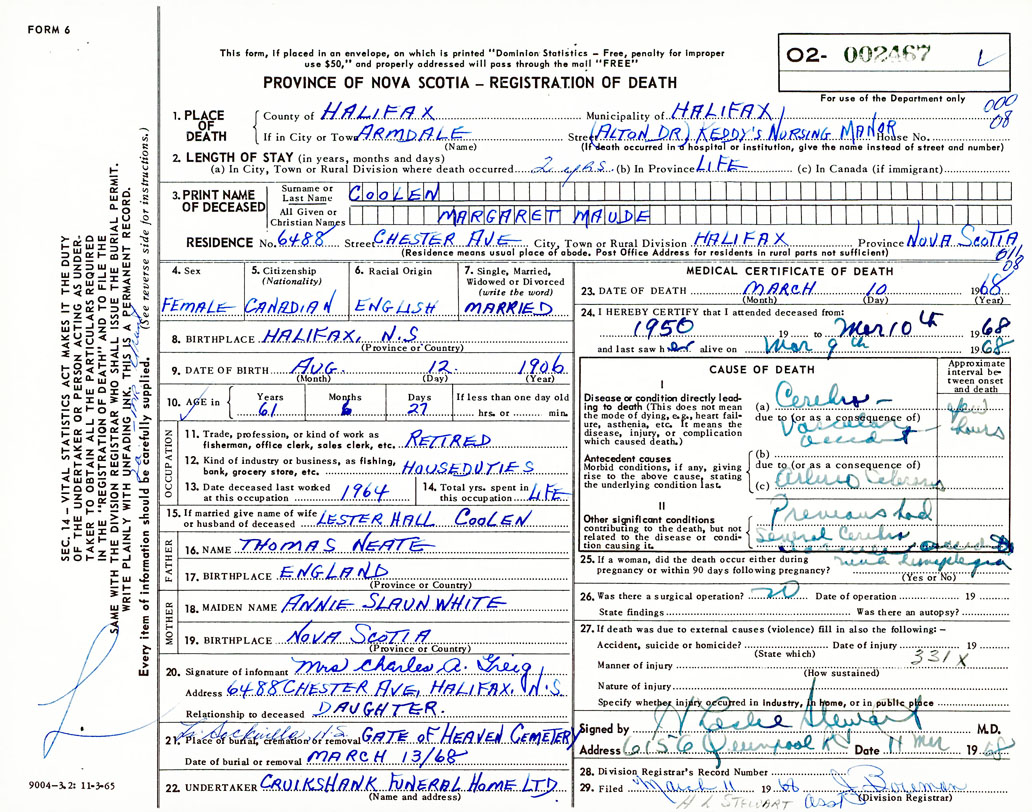 FORM 6
This form, if placed in an envelope, on which is printed "Dominion Statistics – Free, penalty for improper
use $50," and properly addressed will pass through the mail "FREE"
PROVINCE OF NOVA SCOTIA – REGISTRATION OF DEATH
02- 002467
For use of the Department only
000
08
1. PLACE OF DEATH
County of HALIFAX Municipality of HALIFAX
If in City or Town ARMDALE Street (ALTON DR) KEDDY'S NURSING MANOR House No.
(Name) (If death occurred in a hospital or institution, give the name instead of street and number)
2. LENGTH OF STAY (in years, months and days)
(a) In City, Town or Rural Division where death occurred 2 yrs. (b) In Province LIFE (c) In Canada (if immigrant)
3. PRINT NAME OF DECEASED
Surname or Last Name COOLEN
All Given or Christian Names MARGARET MAUDE
RESIDENCE No. 6488 Street CHESTER AVE City, Town or Rural Division HALIFAX Province NOVA SCOTIA
(Residence means usual place of abode. Post Office Address for residents in rural parts not sufficient)
08
4. Sex FEMALE
5. Citizenship (Nationality) CANADIAN
6. Racial Origin ENGLISH
7. Single, Married, Widowed or Divorced (write the word) MARRIED
8. BIRTHPLACE HALIFAX, N.S.
(Province or Country)
9. DATE OF BIRTH AUG. 12 1906
(Month) (Day) (Year)
10. AGE in Years 61 Months 6 Days 27 If less than one day old hrs. or min.
OCCUPATION
11. Trade, profession, or kind of work as fisherman, office clerk, sales clerk, etc. RETIRED
12. Kind of industry or business, as fishing, bank, grocery store, etc. HOUSEDUTIES
13. Date deceased last worked at this occupation 1964
14. Total yrs. spent in this occupation LIFE
15. If married give name of wife or husband of deceased LESTER HALL COOLEN
FATHER
16. NAME THOMAS NEATE
17. BIRTHPLACE ENGLAND
(Province or Country)
MOTHER
18. MAIDEN NAME ANNIE SLAUNWHITE
19. BIRTHPLACE NOVA SCOTIA
(Province or Country)
20. Signature of informant Mrs Charles A. Greig
Address 6488 CHESTER AVE, HALIFAX, N.S.
Relationship to deceased DAUGHTER.
21. Place of burial, cremation or removal GATE OF HEAVEN CEMETERY
Date of burial or removal MARCH 13/68
22. UNDERTAKER CRUIKSHANK FUNERAL HOME LTD.
(Name and address)
MEDICAL CERTIFICATE OF DEATH
23. DATE OF DEATH MARCH 10 1968
(Month) (Day) (Year)
24. I HEREBY CERTIFY that I attended deceased from:
1950 19 to Mar 10th 1968
and last saw her alive on Mar 9th 1968
CAUSE OF DEATH
Approximate interval between onset and death
I
Disease or condition directly leading to death (This does not mean the mode of dying, e.g., heart failure, asthenia, etc. It means the disease, injury, or complication which caused death.)
(a) Cerebro -
due to (or as a consequence of)
Vascular
accident
few
hours
Antecedent causes
Morbid conditions, if any, giving rise to the above cause, stating the underlying condition last.
(b)
due to (or as a consequence of)
(c)
II
Other significant conditions contributing to the death, but not related to the disease or condition causing it.
Previous had
several Cerebro
25. If a woman, did the death occur either during pregnancy or within 90 days following pregnancy?
(Yes or No)
26. Was there a surgical operation? no Date of operation 19
State findings Was there an autopsy?
27. If death was due to external causes (violence) fill in also the following: –
Accident, suicide or homicide? Date of injury 19
(State which)
331X
Manner of injury
(How sustained)
Nature of injury
Specify whether injury occurred in Industry, in home, or in public place
Signed by H Leslie Stewart M.D.
Address 6156 Date 11 Mar 1968
28. Division Registrar's Record Number
29. Filed March 11 1968
(Division Registrar)
H L STEWART Asst
SEC. 14 – VITAL STATISTICS ACT MAKES IT THE DUTY
OF THE UNDERTAKER OR PERSON ACTING AS UNDER-
TAKER TO OBTAIN ALL THE PARTICULARS REQUIRED
IN THE "REGISTRATION OF DEATH" AND TO FILE THE
SAME WITH THE DIVISION REGISTRAR WHO SHALL ISSUE THE BURIAL PERMIT.
WRITE PLAINLY WITH UNFADING INK. THIS IS A PERMANENT RECORD.
Every item of information should be carefully supplied. (See reverse side for instructions.)
9004-3.2: 11-3-65